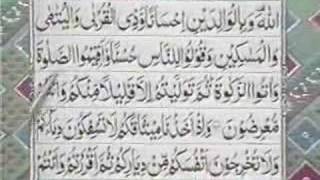 اللّٰهَ وَبِالْوَالِدَيْنِ اِحْسَانًا وَّذِي الْقُرْبٰى وَالْيَتٰمٰى
وَالْمَسٰكِيْنِ وَقُوْلُوْا لِلنَّاسِ حُسْنًا وَّاَقِيْمُوا الصَّلٰوةَ
وَاٰتُوا الزَّكٰوةَ ثُمَّ تَوَلَّيْتُمْ اِلَّا قَلِيْلًا مِّنْكُمْ وَاَنْتُمْ
مُّعْرِضُوْنَ وَاِذْ اَخَذْنَا مِيْثَاقَكُمْ لَا تَسْفِكُوْنَ دِمَآءَكُمْ
وَلَا تُخْرِجُوْنَ اَنْفُسَكُمْ مِّنْ دِيَارِكُمْ ثُمَّ اَقْرَرْتُمْ وَاَنْتُمْ